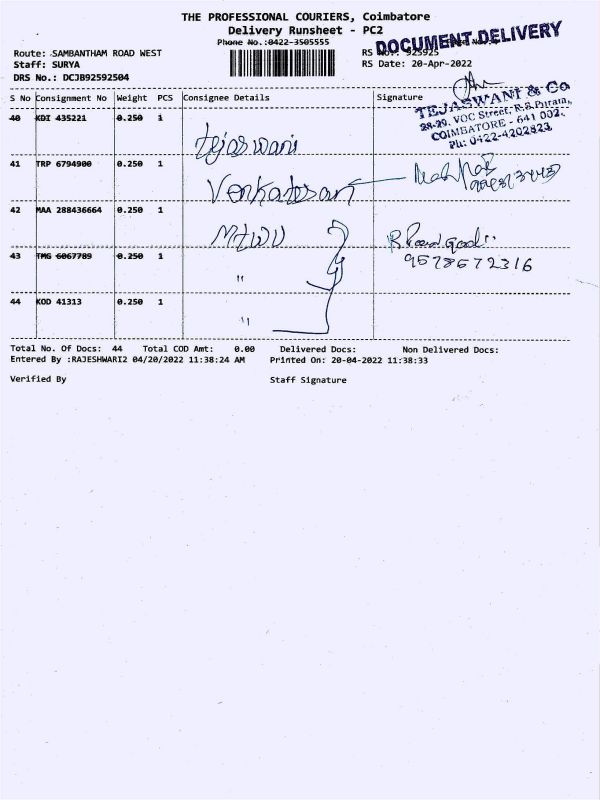 THE PROFESSIONAL COURIERS, Coimbatore
Delivery Runsheet - PC2
Phone No.:0422-3505555
DOCUMENT DELIVERY
Route: SAMBANTHAM ROAD WEST
RS No.: 925925
Staff: SURYA
RS Date: 20-Apr-2022
DRS No.: DCJB92592504
S No Consignment No Weight PCS Consignee Details Signature
TEJASWANI & Co
28-29, VOC Street, R.S.Puram,
COIMBATORE - 641 002.
Ph: 0422-4202823
40 KDI 435221 0.250 1
tejaswani
41 TRP 6794900 0.250 1
Venkatesan
42 MAA 288436664 0.250 1
43 TMG 6067789 0.250 1 "
9578672316
44 KOD 41313 0.250 1 "
Total No. Of Docs: 44 Total COD Amt: 0.00 Delivered Docs: Non Delivered Docs:
Entered By :RAJESHWARI2 04/20/2022 11:38:24 AM Printed On: 20-04-2022 11:38:33
Verified By Staff Signature